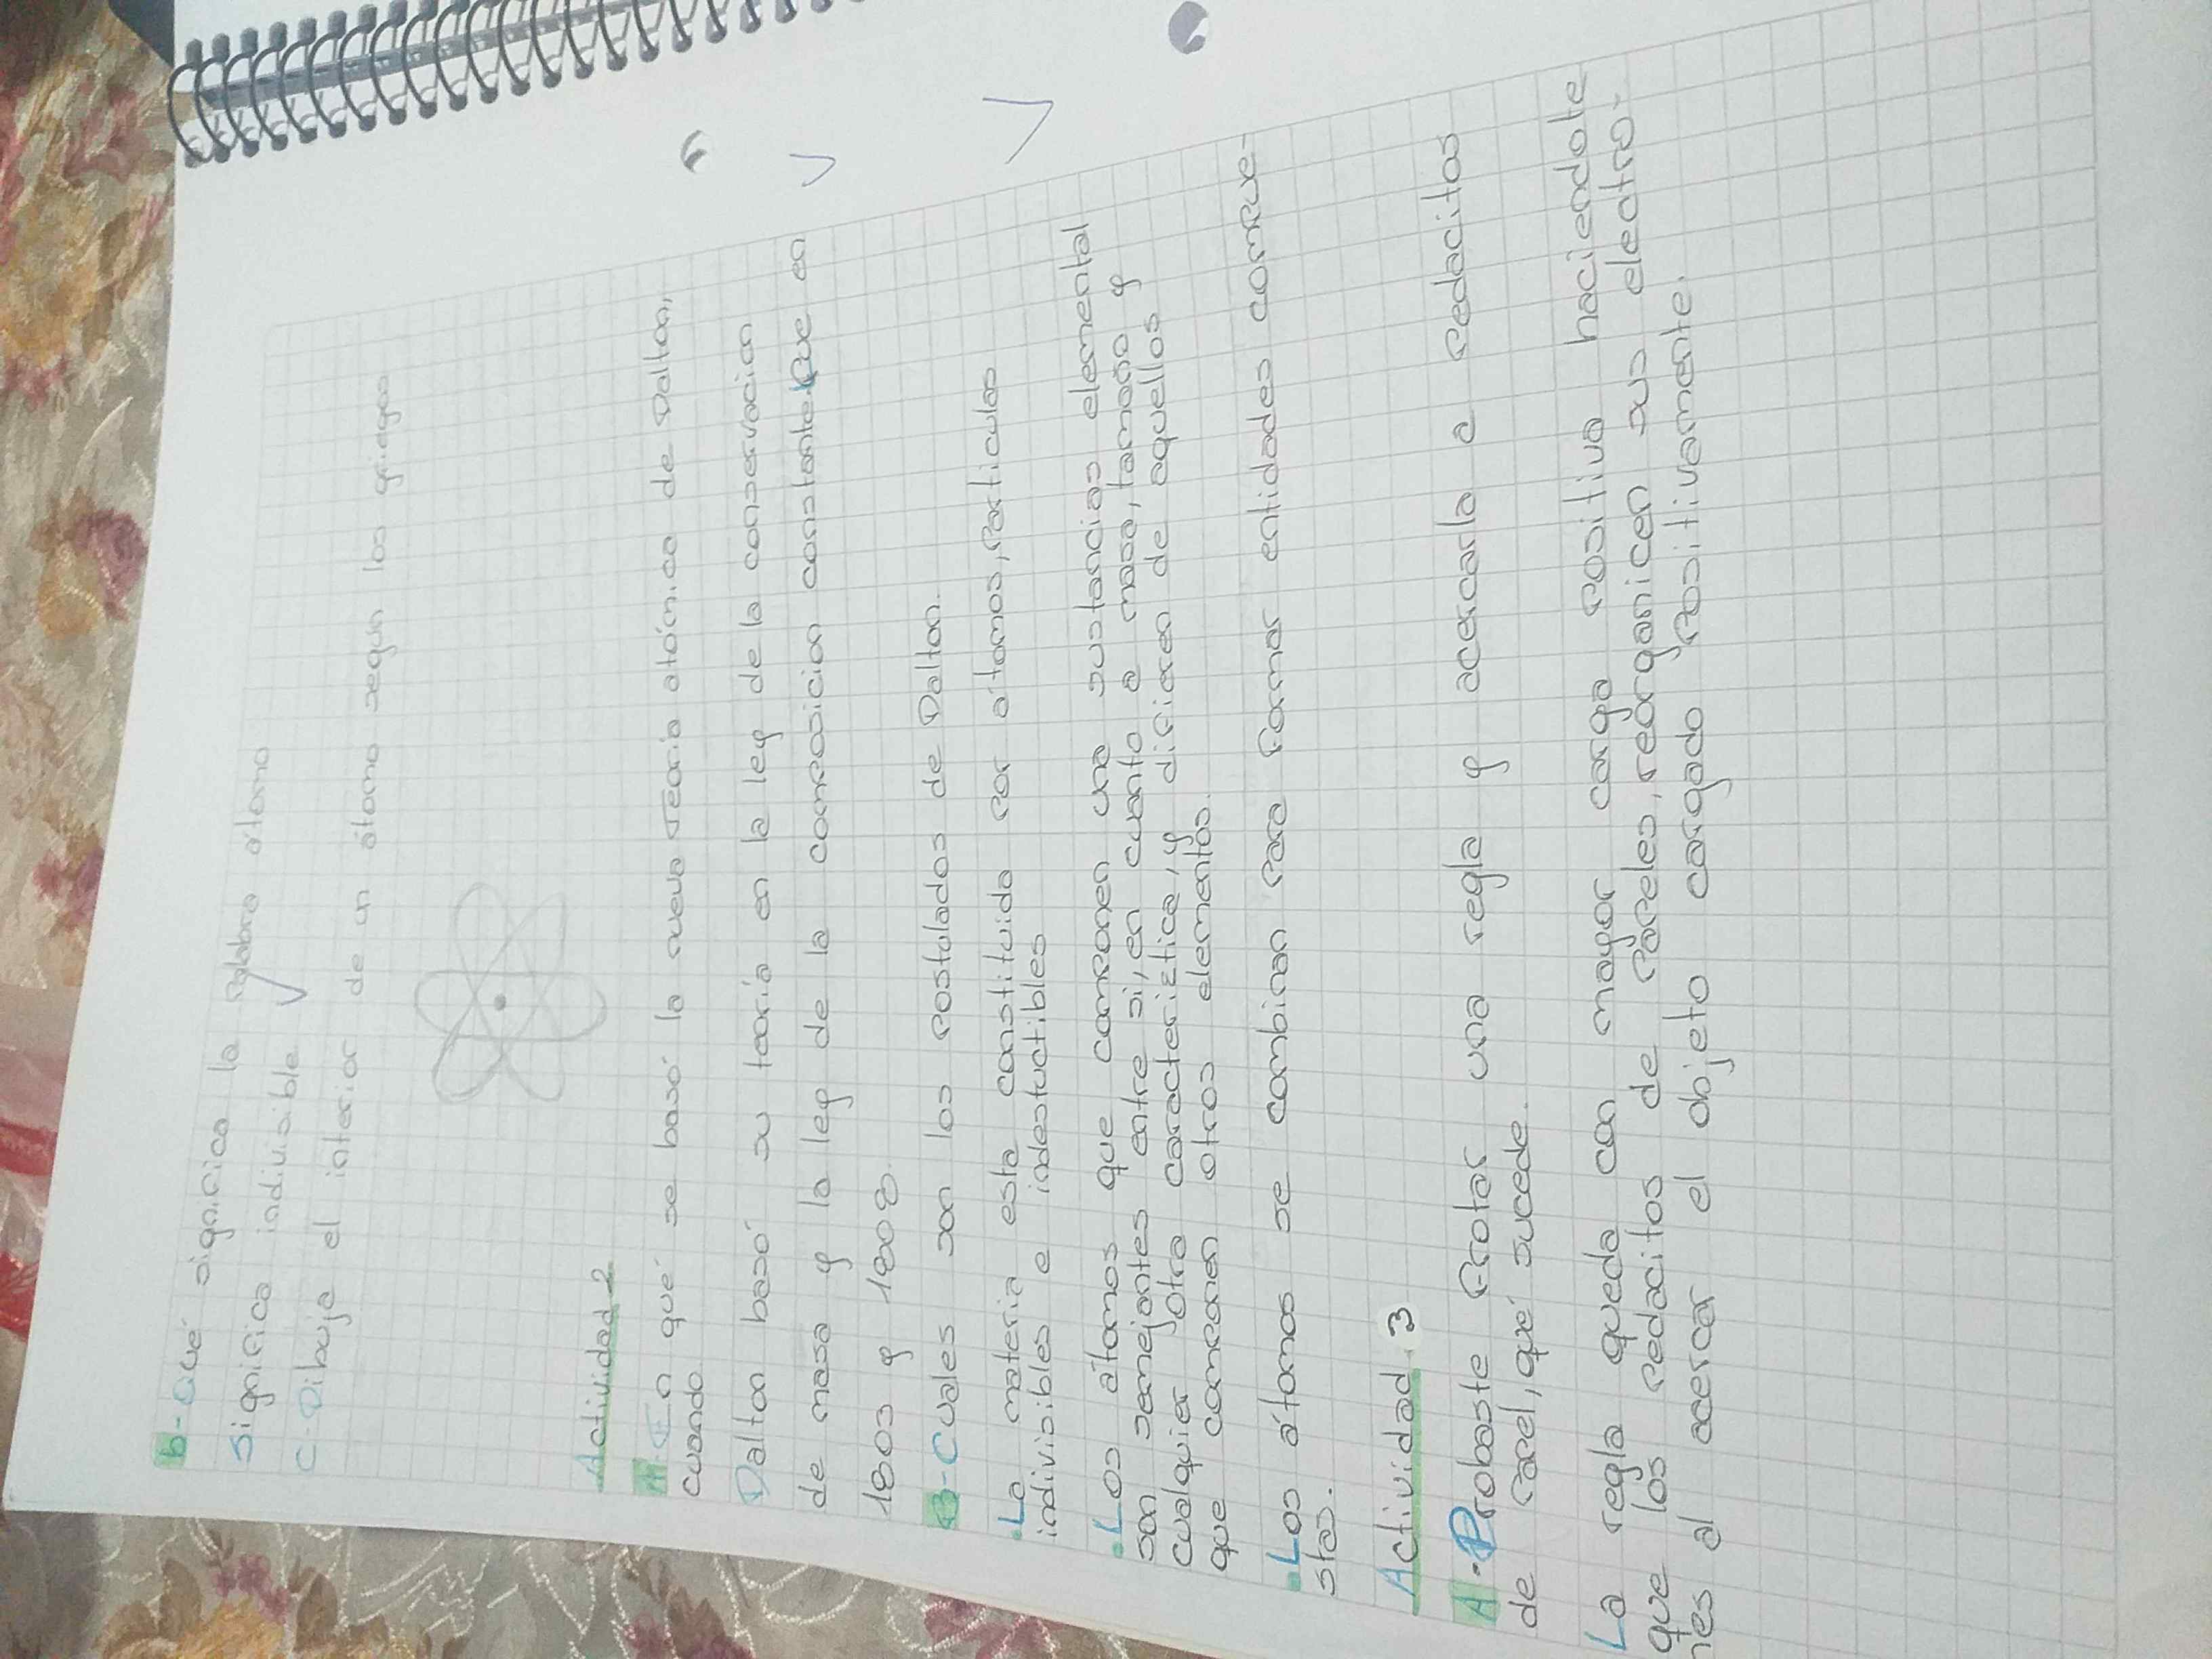 b-Qué significa la Palabra átomo
Significa indivisible
C-Dibuja el interior de un átomo según los griegos
Actividad 2
A-En qué se basó la nueva teoria atómica de Dalton,
cuando
Dalton basó su teoria en la ley de la conservacion
de masa y la ley de la composicion constante fue en
1803 y 1808.
B-Cuales son los postulados de Dalton.
·La materia esta constituida por átomos, particulas
indivisibles e indestuctibles
·Los átomos que componen una sustancias elemental
son semejantes entre si, en cuanto a masa, tamaño y
cualquier otra caracteristica, y difieren de aquellos
que componen otros elementos.
·Los átomos se combinan para formar entidades compue-
stas.
Actividad 3
A-Probaste frotar una regla y acercarla a pedacitos
de papel, qué sucede.
La regla queda con mayor carga positiva haciendole
que los pedacitos de papeles, reorganicen sus electro-
nes al acercar el objeto cargado positivamente.